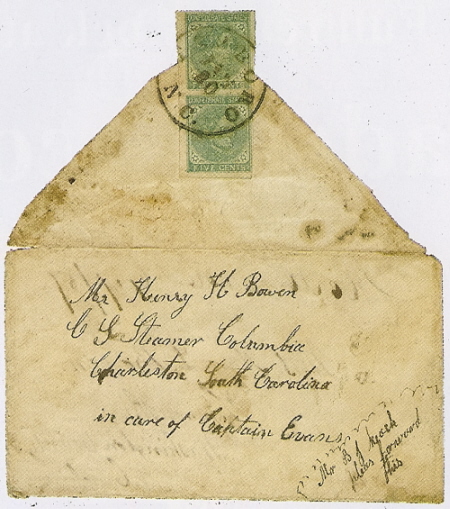 FIVE CENTS
N.C.
FIVE CENTS
Mr Henry H Bowen
C S Steamer Columbia
Charleston South Carolina
in care of Captain Evans
Mr B J
pleas forward
this